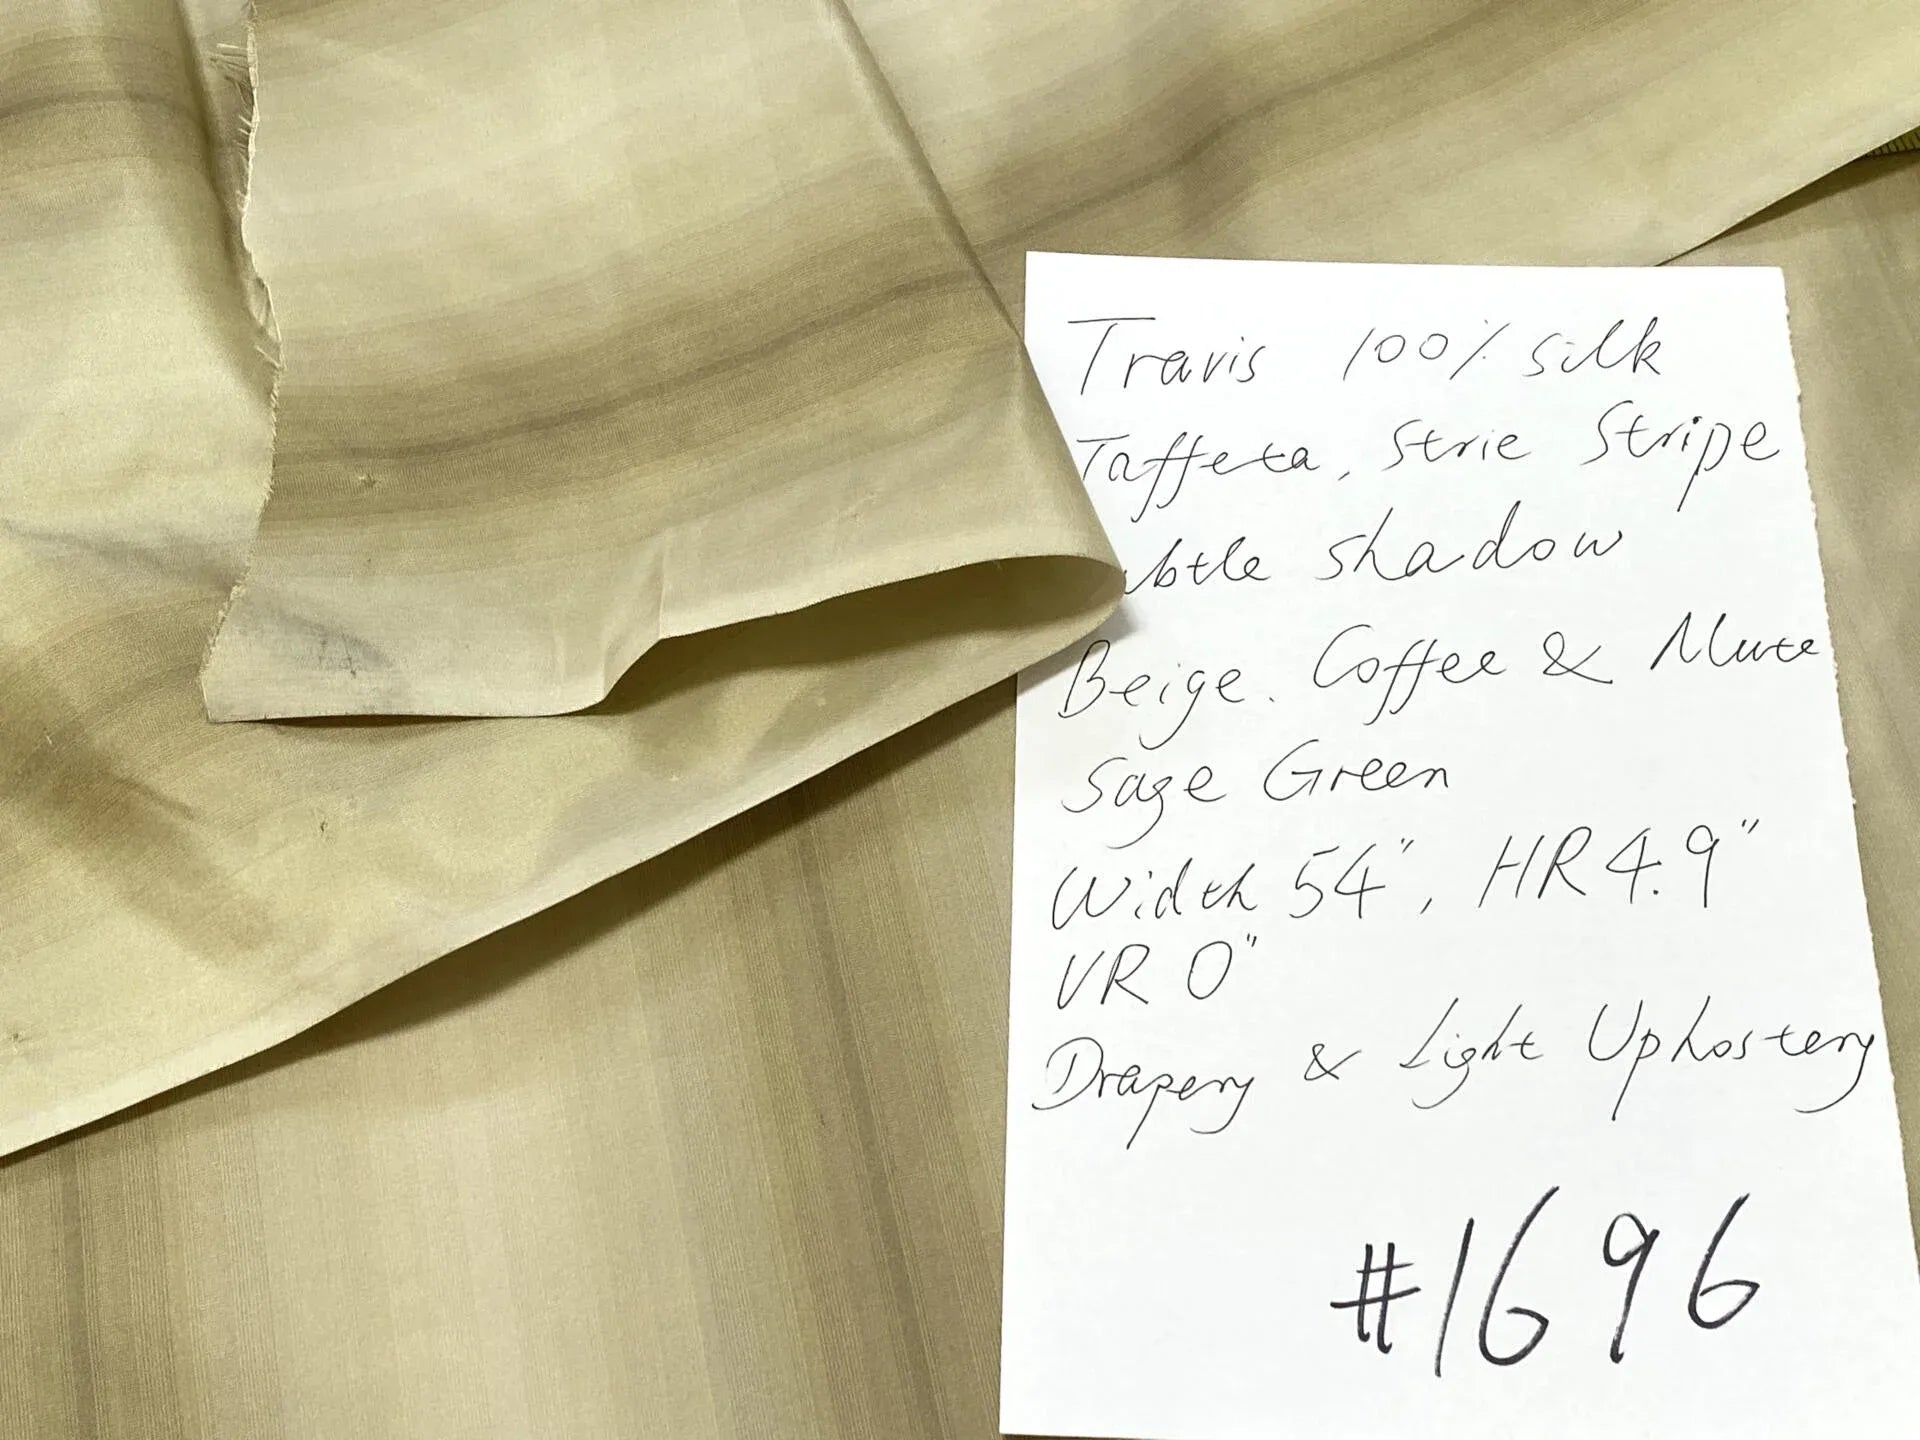 Travis 100% silk
Taffeta, Strie Stripe
shadow
Beige. Coffee & Mute
Sage Green
Width 54", HR 4.9"
VR 0"
Drapery & Light Upholstery
#1696